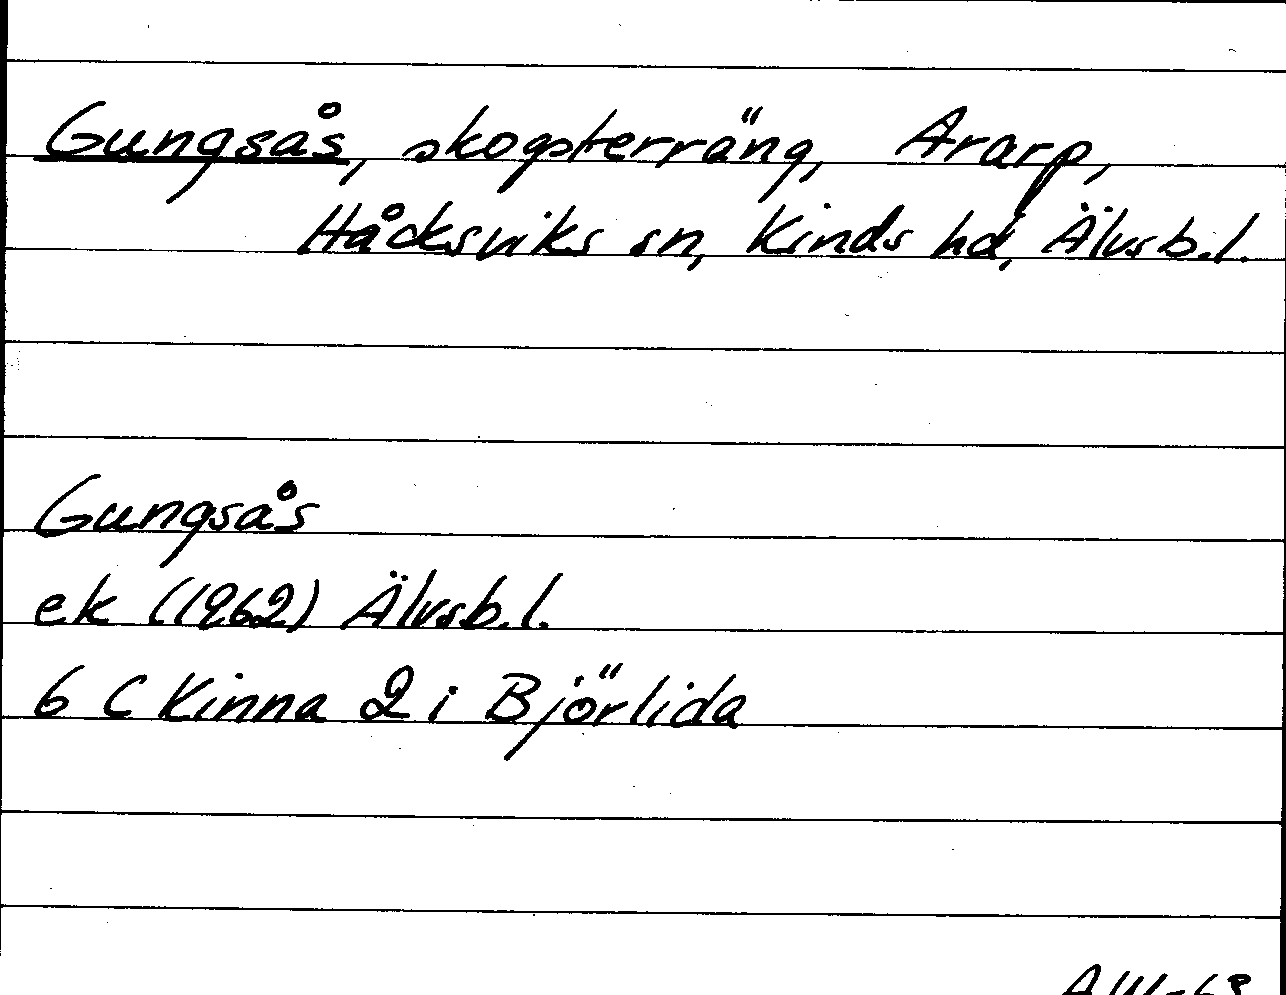 Gungsås, skogsterräng, Ararp,
Håcksviks sn, Kinds hd, Älvsb.l.
Gungsås
ek (1962) Älvsb.l.
6 C Kinna 2 i Björlida